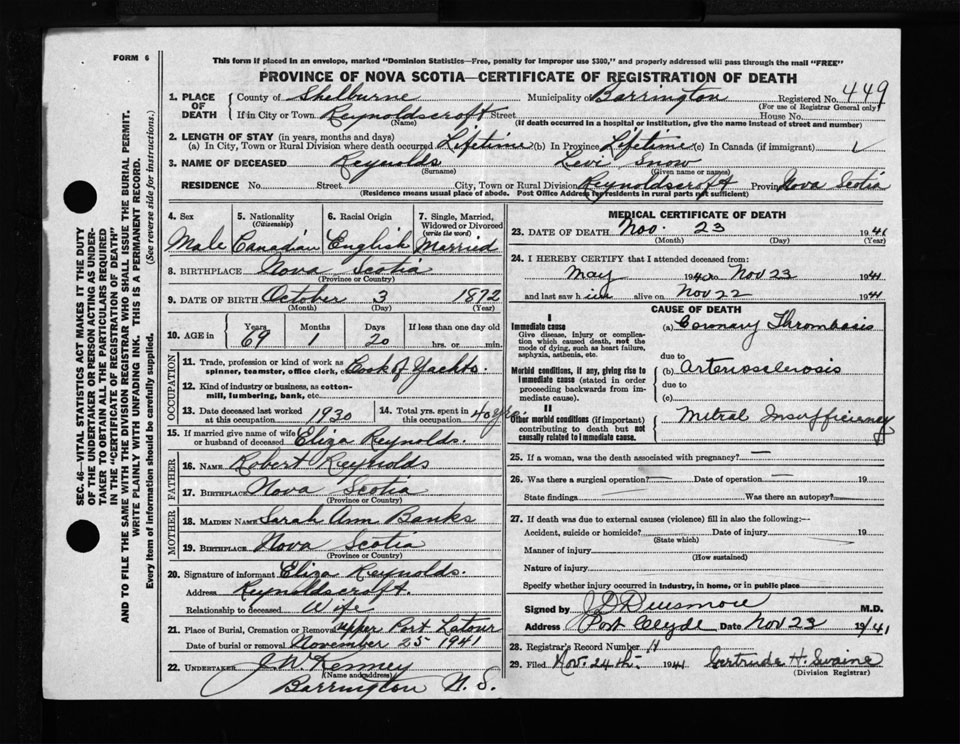 FORM 6
This form if placed in an envelope, marked "Dominion Statistics—Free, penalty for improper use $300," and properly addressed will pass through the mail "FREE"
PROVINCE OF NOVA SCOTIA—CERTIFICATE OF REGISTRATION OF DEATH
SEC. 46—VITAL STATISTICS ACT MAKES IT THE DUTY
OF THE UNDERTAKER OR PERSON ACTING AS UNDER-
TAKER TO OBTAIN ALL THE PARTICULARS REQUIRED
IN THE "CERTIFICATE OF REGISTRATION OF DEATH"
AND TO FILE THE SAME WITH THE DIVISION REGISTRAR WHO SHALL ISSUE THE BURIAL PERMIT.
WRITE PLAINLY WITH UNFADING INK. THIS IS A PERMANENT RECORD.
Every item of information should be carefully supplied. (See reverse side for instructions.)
1. PLACE OF DEATH County of Shelburne Municipality of Barrington Registered No. 449
(For use of Registrar General only)
If in City or Town Reynoldscroft Street House No.
(Name) (If death occurred in a hospital or institution, give the name instead of street and number)
2. LENGTH OF STAY (in years, months and days)
(a) In City, Town or Rural Division where death occurred Lifetime (b) In Province Lifetime (c) In Canada (if immigrant) ✓
3. NAME OF DECEASED Reynolds Levi Snow
(Surname) (Given name or names)
RESIDENCE No. Street City, Town or Rural Division Reynoldscroft Province Nova Scotia
(Residence means usual place of abode. Post Office Address for residents in rural parts not sufficient)
4. Sex 5. Nationality (Citizenship) 6. Racial Origin 7. Single, Married, Widowed or Divorced (write the word)
Male Canadian English Married
8. BIRTHPLACE Nova Scotia
(Province or Country)
9. DATE OF BIRTH October 3 1872
(Month) (Day) (Year)
10. AGE in Years Months Days If less than one day old
69 1 20 hrs. or min.
OCCUPATION
11. Trade, profession or kind of work as spinner, teamster, office clerk, etc. Cook of Yachts.
12. Kind of industry or business, as cotton-mill, lumbering, bank, etc.
13. Date deceased last worked at this occupation 1930 14. Total yrs. spent in this occupation 40 yrs.
15. If married give name of wife or husband of deceased Eliza Reynolds.
FATHER
16. NAME Robert Reynolds
17. BIRTHPLACE Nova Scotia
(Province or Country)
MOTHER
18. MAIDEN NAME Sarah Ann Banks
19. BIRTHPLACE Nova Scotia
(Province or Country)
20. Signature of informant Eliza Reynolds.
Address Reynoldscroft.
Relationship to deceased Wife
21. Place of Burial, Cremation or Removal Upper Port Latour
Date of burial or removal November 25 1941
22. UNDERTAKER J. W. Kenney
(Name and address)
Barrington N. S.
MEDICAL CERTIFICATE OF DEATH
23. DATE OF DEATH Nov. 23 1941
(Month) (Day) (Year)
24. I HEREBY CERTIFY that I attended deceased from:
May 1940 to Nov 23 1941
and last saw him alive on Nov 22 1941
CAUSE OF DEATH
I
Immediate cause (a) Coronary Thrombosis
Give disease, injury or complication which caused death, not the mode of dying, such as heart failure, asphyxia, asthenia, etc.
due to
Morbid conditions, if any, giving rise to immediate cause (stated in order proceeding backwards from immediate cause).
(b) Arteriosclerosis
due to
(c)
II
Other morbid conditions (if important) contributing to death but not causally related to immediate cause.
Mitral Insufficiency
25. If a woman, was the death associated with pregnancy? —
26. Was there a surgical operation? — Date of operation — 19
State findings Was there an autopsy? —
27. If death was due to external causes (violence) fill in also the following:—
Accident, suicide or homicide? Date of injury 19
(State which)
Manner of injury
(How sustained)
Nature of injury
Specify whether injury occurred in industry, in home, or in public place
Signed by J D Densmore M.D.
Address Port Clyde Date Nov 23 1941
28. Registrar's Record Number
29. Filed Nov. 24th 1941 Gertrude H. Swaine
(Division Registrar)